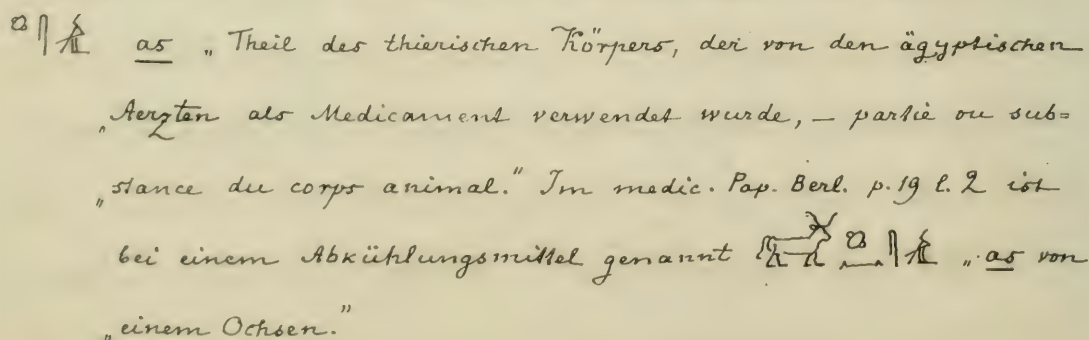 as „Theil des thierischen Körpers, der von den ägyptischen
„Aerzten als Medicament verwendet wurde, – partie ou sub=
„stance du corps animal.“ Im medic. Pap. Berl. p. 19 l. 2 ist
bei einem Abkühlungsmittel genannt „as von
„einem Ochsen.“